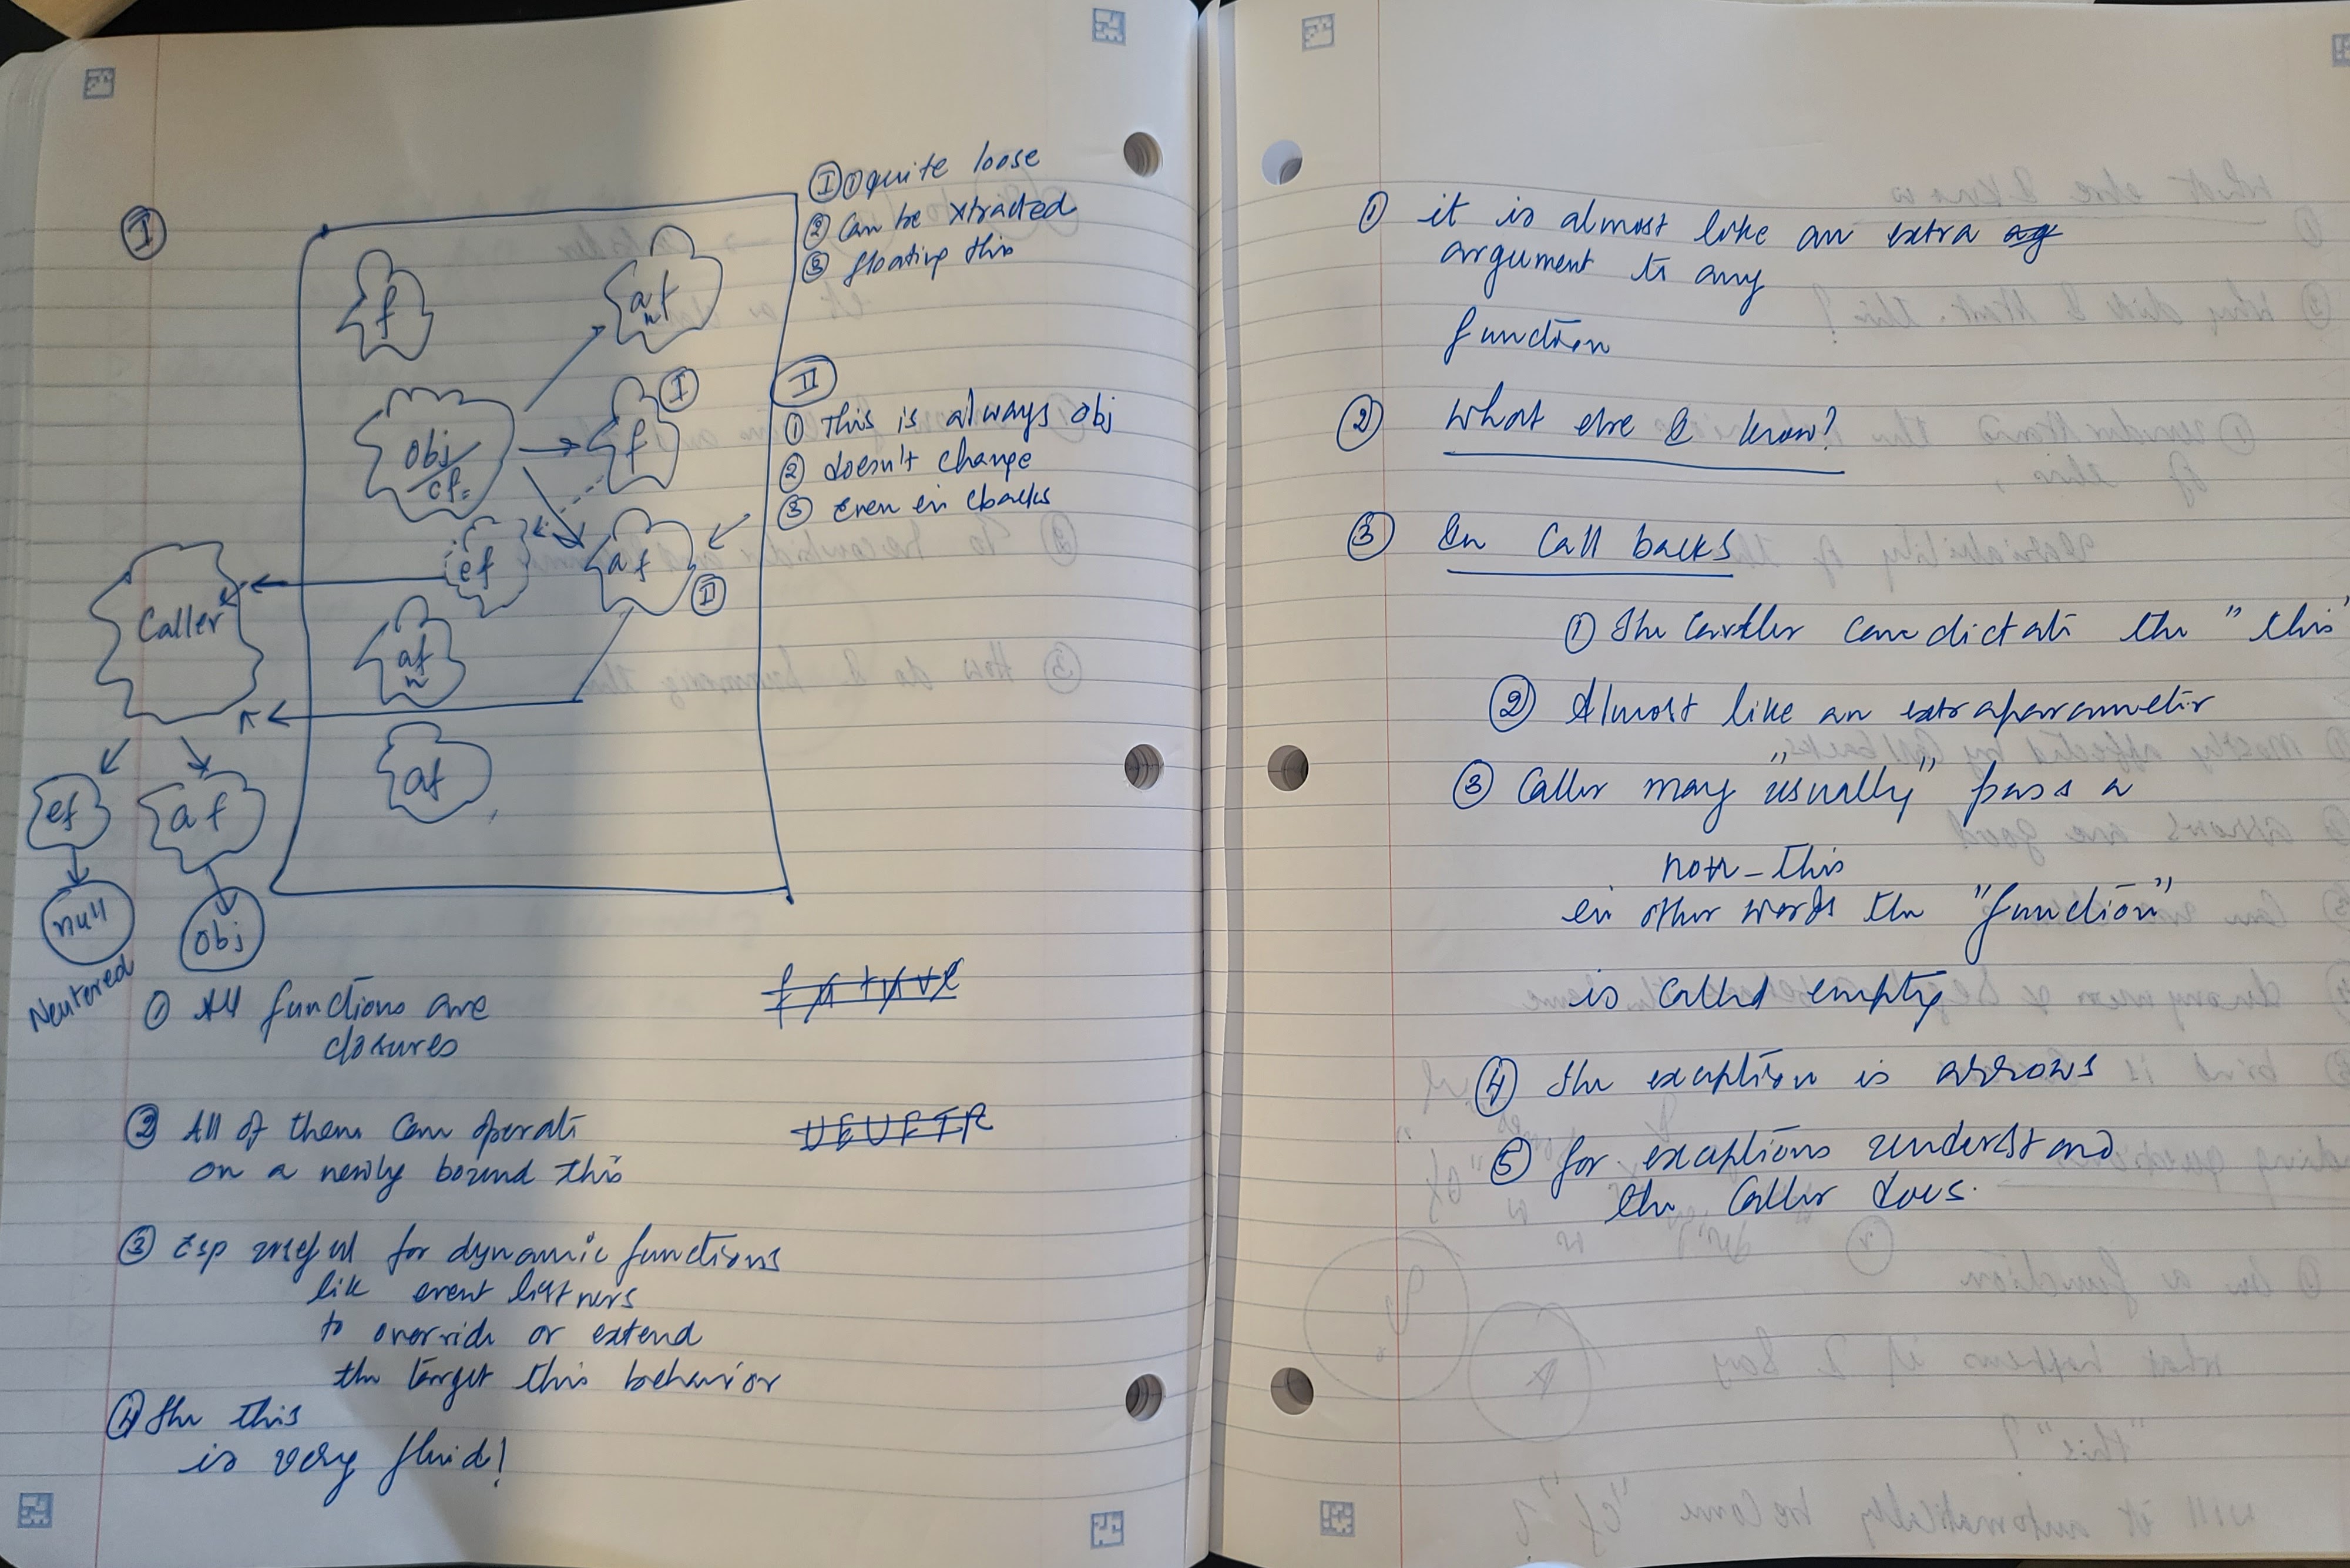 I
f
anf
I
f
obj/
cf
ef
af
II
Caller
anf
af
ef
af
null
obj
Neutered
I ① quite loose
② Can be xtracted
③ floating this
II
① This is always obj
② doesn't change
③ Even in cbacks
① All functions are
closures
② All of them can operate
on a newly bound this
③ Esp useful for dynamic functions
like event listners
to override or extend
the target this behavior
④ The this
is very fluid!
① it is almost like an extra
argument to any
function
② What else I know?
③ In Call backs
① The caller can dictate the "this"
② Almost like an extra parameter
③ Caller may "usually" pass a
non-this
in other words the "function"
is called empty
④ The exception is arrows
⑤ for exceptions understand
the caller does.